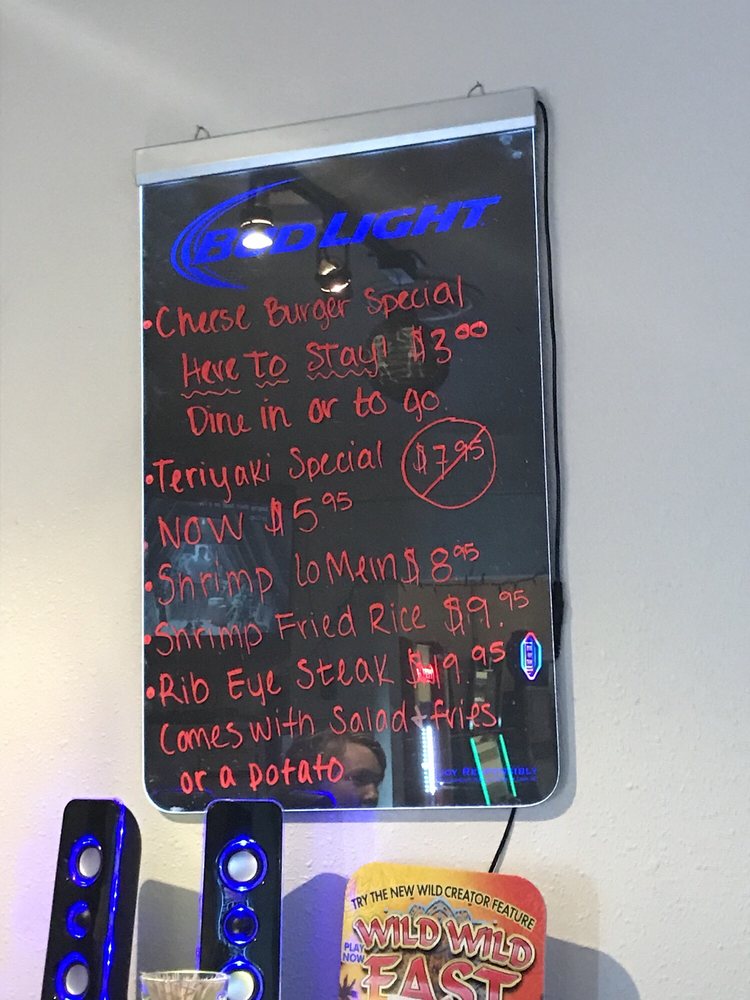 BUD LIGHT
• Cheese Burger Special
Here To Stay! $3.00
Dine in or to go
• Teriyaki Special $7.95
NOW $5.95
• Shrimp Lo Mein $8.95
• Shrimp Fried Rice $9.95
• Rib Eye Steak $19.95
Comes with Salad + fries
or a potato
TRY THE NEW WILD CREATOR FEATURE
WILD WILD
PLAY
NOW
EAST